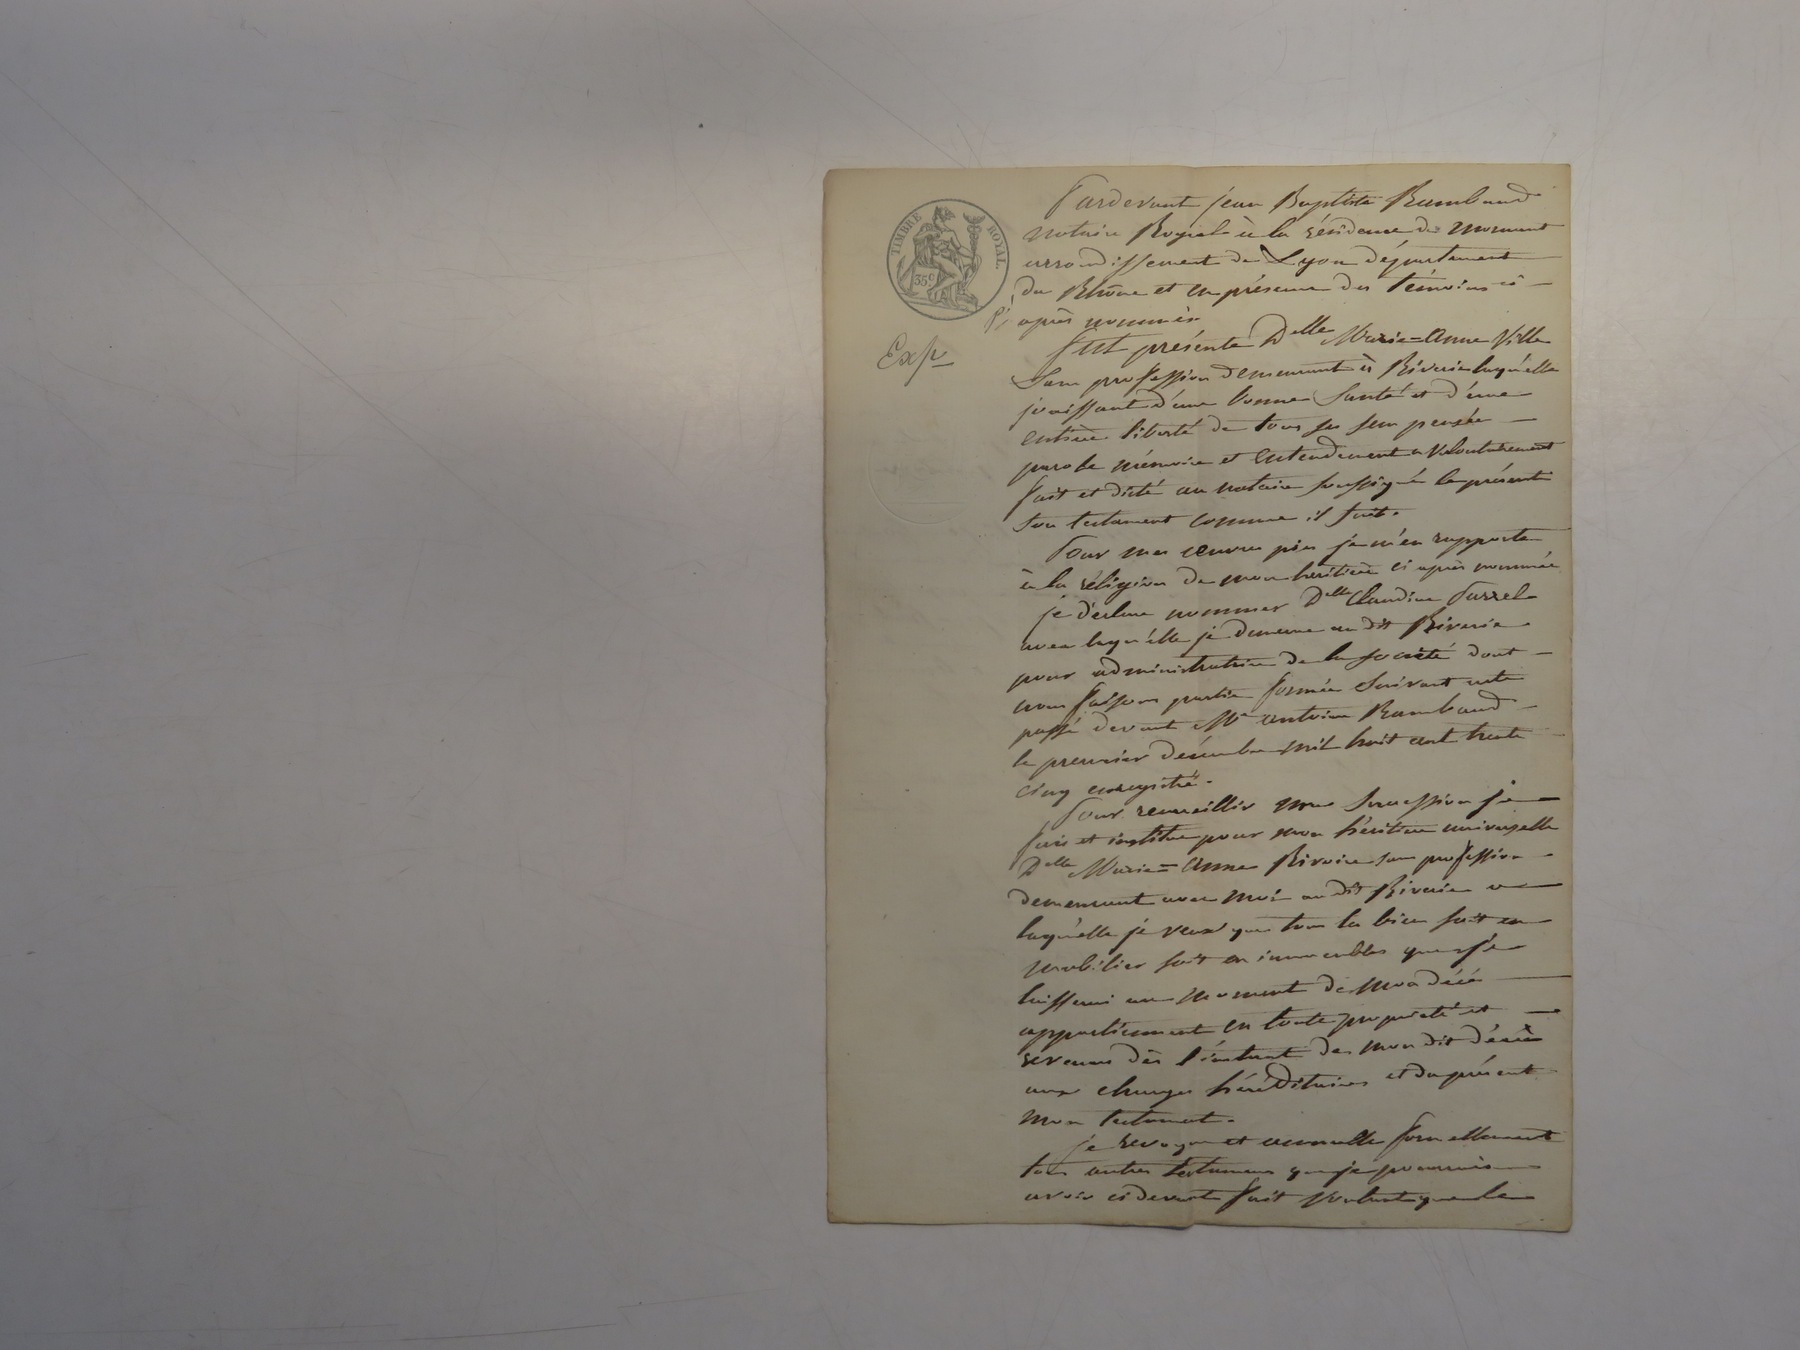 TIMBRE ROYAL.
35c
Exp
Pardevant jean Baptiste Rambaud
notaire Royal à la résidence de Mornant
arrondissement de Lyon département
du Rhône et en présence des témoins ci
après nommés
Fut présente Delle Marie=Anne Ville
Sans profession demeurant à Riverie laquélle
jouissant d'une bonne Santé et d'une
entière liberté de tous ses sens pensée
parole mémoire et entendement a volontairement
fait et dicté au notaire soussigné le présent
son testament comme il suit.
Pour mes œuvres pies je m'en rapporte
à la réligion de mon héritière ci après nommée
je déclare nommer Delle Claudine Farrel
avec laqu'élle je demeure au dit Riverie
pour administratrice de la société dont
nous faisons partie formée Suivant acte
passé devant Me antoine Rambaud
le premier décembre mil huit cent trente
cinq enregistré.
Pour recueillir ma Succession je
fais et institue pour mon héritière universelle
Delle Marie=Anne Rivoire sans profession
demeurant avec moi au dit Riverie a
laqu'élle je veux que tous les bien soit en
mobilier soit en immeubles que je
laisserai au moment de mon décé
appartiennent en toute propriété et
revenus dès l'instant de mon dit décès
aux charges héréditaires et du présent
mon testament.
je revoque et annulle formellement
tous autres testamens que je pourrais
avoir ci devant fait voulant que le